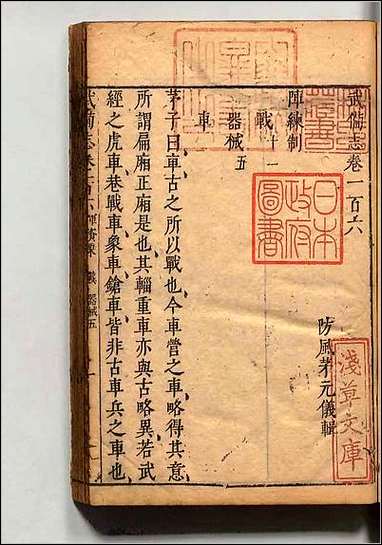 武備志卷一百六
防風茅元儀輯
陣練制
戰十一
器械五
車
茅子曰車古之所以戰也今車營之車略得其意
所謂扁廂正廂是也其輜重車亦與古略異若武
經之虎車巷戰車象車鎗車皆非古車兵之車也
武備志卷一百六 陣練制 戰 器械五
日本
政府
圖書
淺草文庫